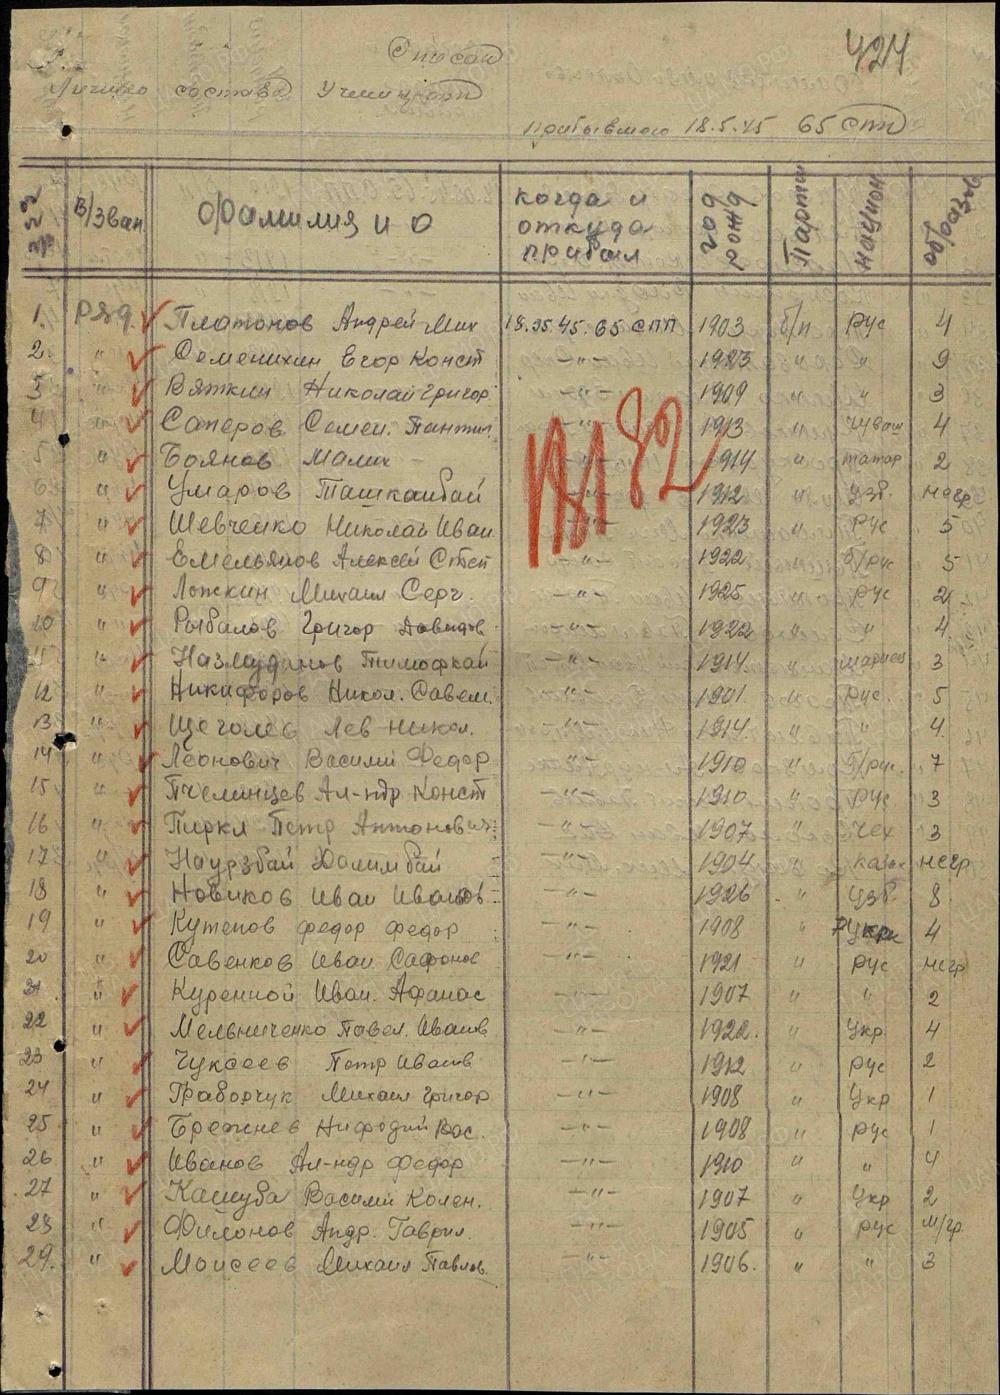 424
Список
Личного состава
Прибывшего 18.5.45 65 спп
№№ В/Зван Фамилия и О когда и откуда прибыл год рожд Партий национ образов
1. ряд. Платонов Андрей Мих 18.05.45. 65 спп 1903 б/п рус 4
2. " Семенихин Егор Конст -"- 1923 " " 9
3 " Вяткин Николай Григор -"- 1909 " " 3
4 " Саперов Семен. -"- 1913 " чуваш 4
5 " Боянов Малик -"- 1914 " татар 2
6 " Умаров Ташканбай -"- 1912 " узб. негр
7 " Шевченко Николай Иван -"- 1923 " рус 5
8 " Емельянов Алексей Степ -"- 1922 " б/рус 5
9 " Ложкин Михаил Серг. -"- 1925 " рус 2
10 " Рыбалов Григор Давидов -"- 1922 " " 4
11 " -"- 1914. " 3
12 " Никифоров Никол. Савел. -"- 1901. " рус. 5
13 " Щеголев Лев Никол. -"- 1914. " " 4.
14 " Леонович Василий Федор -"- 1910 " б/рус. 7
15 " Пчелинцев Ал-ндр Конст -"- 1910 " рус 3
16 " Пиркл Петр Антонович -"- 1907 " чех 3
17 " Наурзбай Халимбай -"- 1904 " казах негр
18 " Новиков Иван Иванов -"- 1926 " узб. 8
19 " Кутепов Федор Федор -"- 1908 " 4
20 " Савенков Иван Сафонов -"- 1921 " рус негр
21 " Куренной Иван. Афанас -"- 1907 " " 2
22 " Мельниченко Павел. Иванов -"- 1922. " Укр 4
23 " Чуксеев Петр Иванов -"- 1912 " рус 2
24 " Граборчук Михаил Григор -"- 1908 " Укр 1
25 " Брежнев Нифодий Вас. -"- 1908 " рус 1
26 " Иванов Ал-ндр Федор -"- 1910 " " 4
27 " Кашуба Василий -"- 1907 " Укр 2
28 " Филонов Андр. Гаврил. -"- 1905 " рус м/гр.
29. " Моисеев Михаил Павлов -"- 1906. " " 3